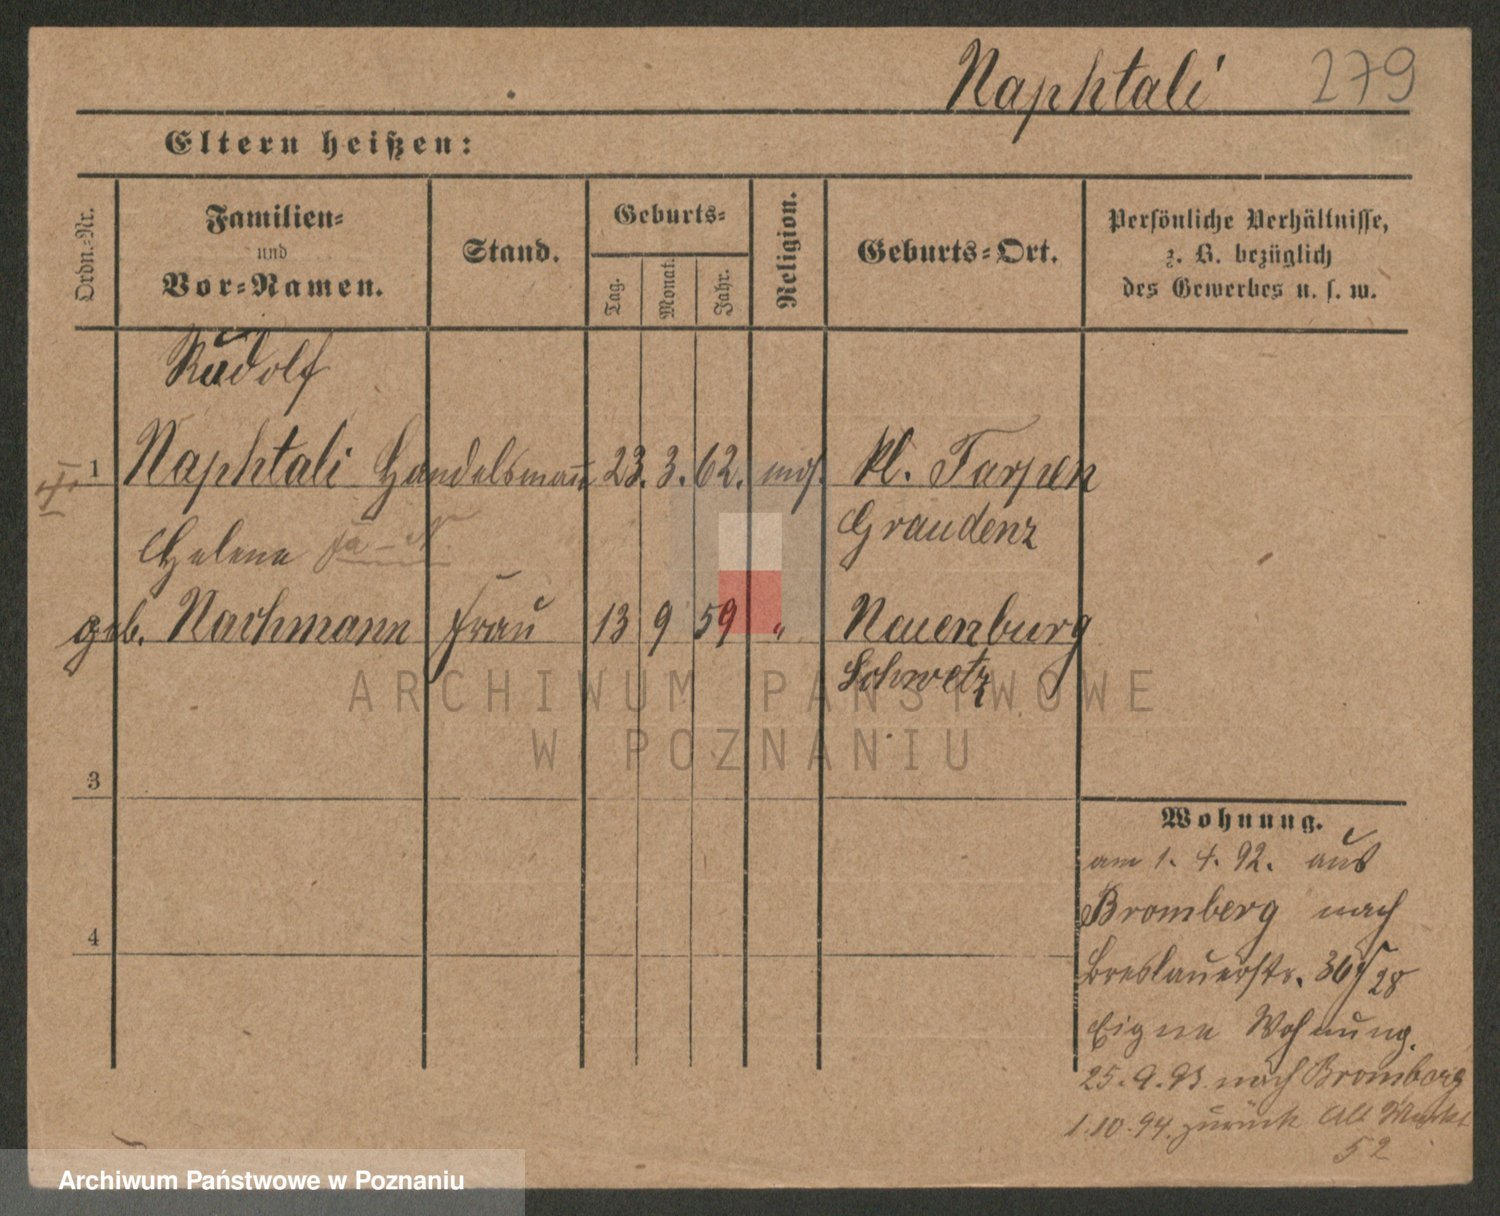 Naphtali 279
Eltern heißen:
Ordn.=Nr.
Familien=
und
Vor=Namen.
Stand.
Geburts=
Tag.
Monat.
Jahr.
Religion.
Geburts=Ort.
Persönliche Verhältnisse,
z. B. bezüglich
des Gewerbes u. s. w.
Rudolf
1 Naphtali Handelsmañ 23. 3. 62. mos. kl. Tarpen
Graudenz
Helene
geb. Nachmann Frau 13 9 59 " Neuenburg
Schwetz
ARCHIWUM PAŃSTWOWE
W POZNANIU
3
4
Wohnung.
am 1. 4. 92. aus
Bromberg nach
Breslauerstr. 36/28
Eigne Wohnung.
25.9.93. nach Bromberg
1.10.94. zurück Alt Markt
52
Archiwum Państwowe w Poznaniu